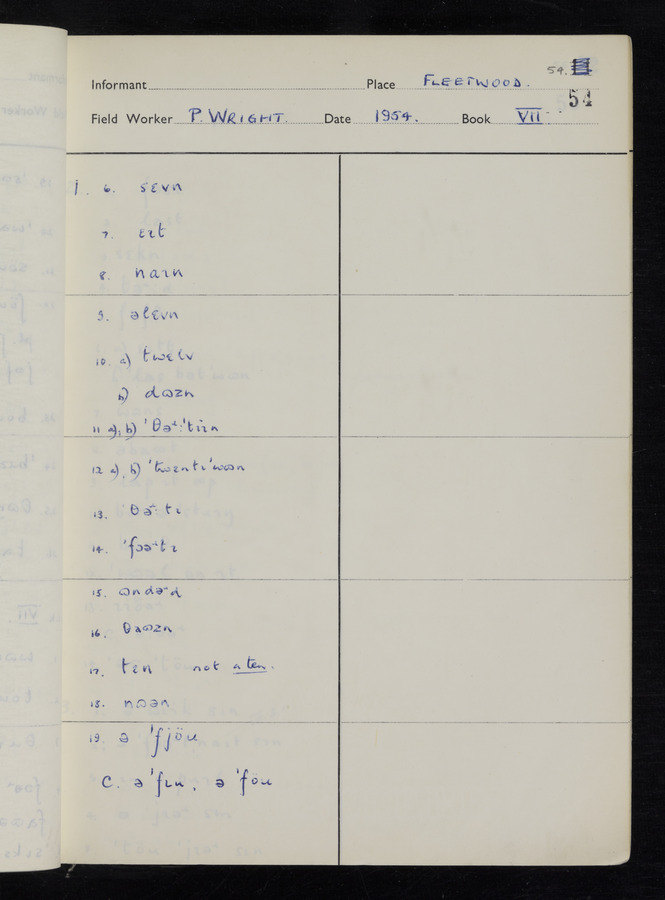 54.
Informant Place FLEETWOOD.
54
Field Worker P. WRIGHT. Date 1954. Book VII.
1. 6. sɛvn
7. ɛɪt
8. naɪn
9. əlɛvn
10. a) twɛlv
b) dʊzn
11 a), b) 'θəʴ:'tiɪn
12 a), b) 'twɛntɪ'wʊn
13. 'θəʴtɪ
14. 'fɔəʴtɪ
15. ʊndəʴd
16. θaʊzn
17. tɛn not a ten.
18. nʊən
19. ə 'fjöu
C. ə 'fɪu, ə 'föu